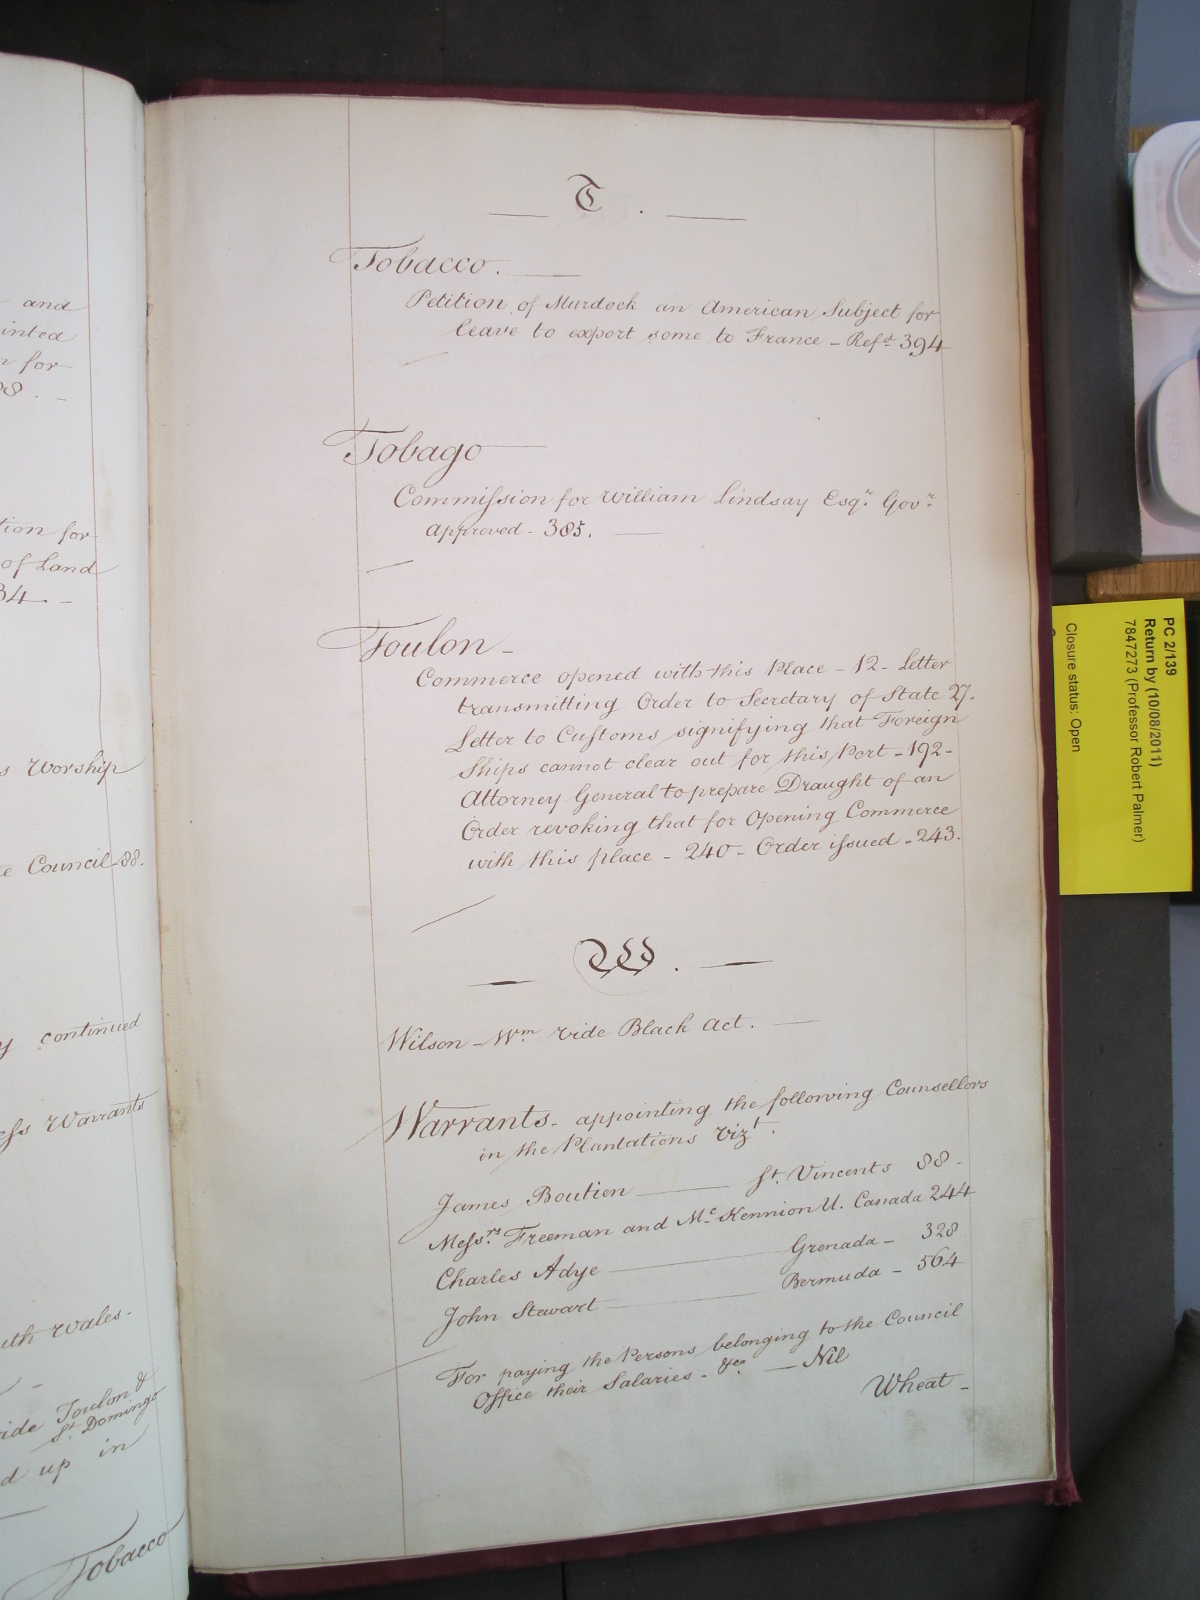 and
inted
n for
98. -
tion for
of Land
34 -
s Worship
e Council - 88.
y continued
ess Warrants
uth Wales -
ide Toulon &
St. Domingo
d up in
Tobacco
T.
Tobacco.
Petition of Murdock an American Subject for
leave to export some to France - Refd. 394
Tobago
Commission for William Lindsay Esqr. Govr.
approved - 385.
Toulon -
Commerce opened with this Place - 12 - Letter
transmitting Order to Secretary of State 27.
Letter to Customs signifying that Foreign
Ships cannot clear out for this Port - 192 -
Attorney General to prepare Draught of an
Order revoking that for Opening Commerce
with this place - 240 - Order issued - 243.
W.
Wilson - Wm. vide Black Act.
Warrants - appointing the following Counsellors
in the Plantations Vizt.
James Boutien St. Vincents 88 -
Messrs. Freeman and Mc.Kennion U. Canada 244
Charles Adye Grenada - 328
John Stewart Bermuda - 564
For paying the Persons belonging to the Council
Office their Salaries - &ca. Nil
Wheat -
PC 2/139
Return by (10/08/2011)
7847273 (Professor Robert Palmer)
Closure status: Open